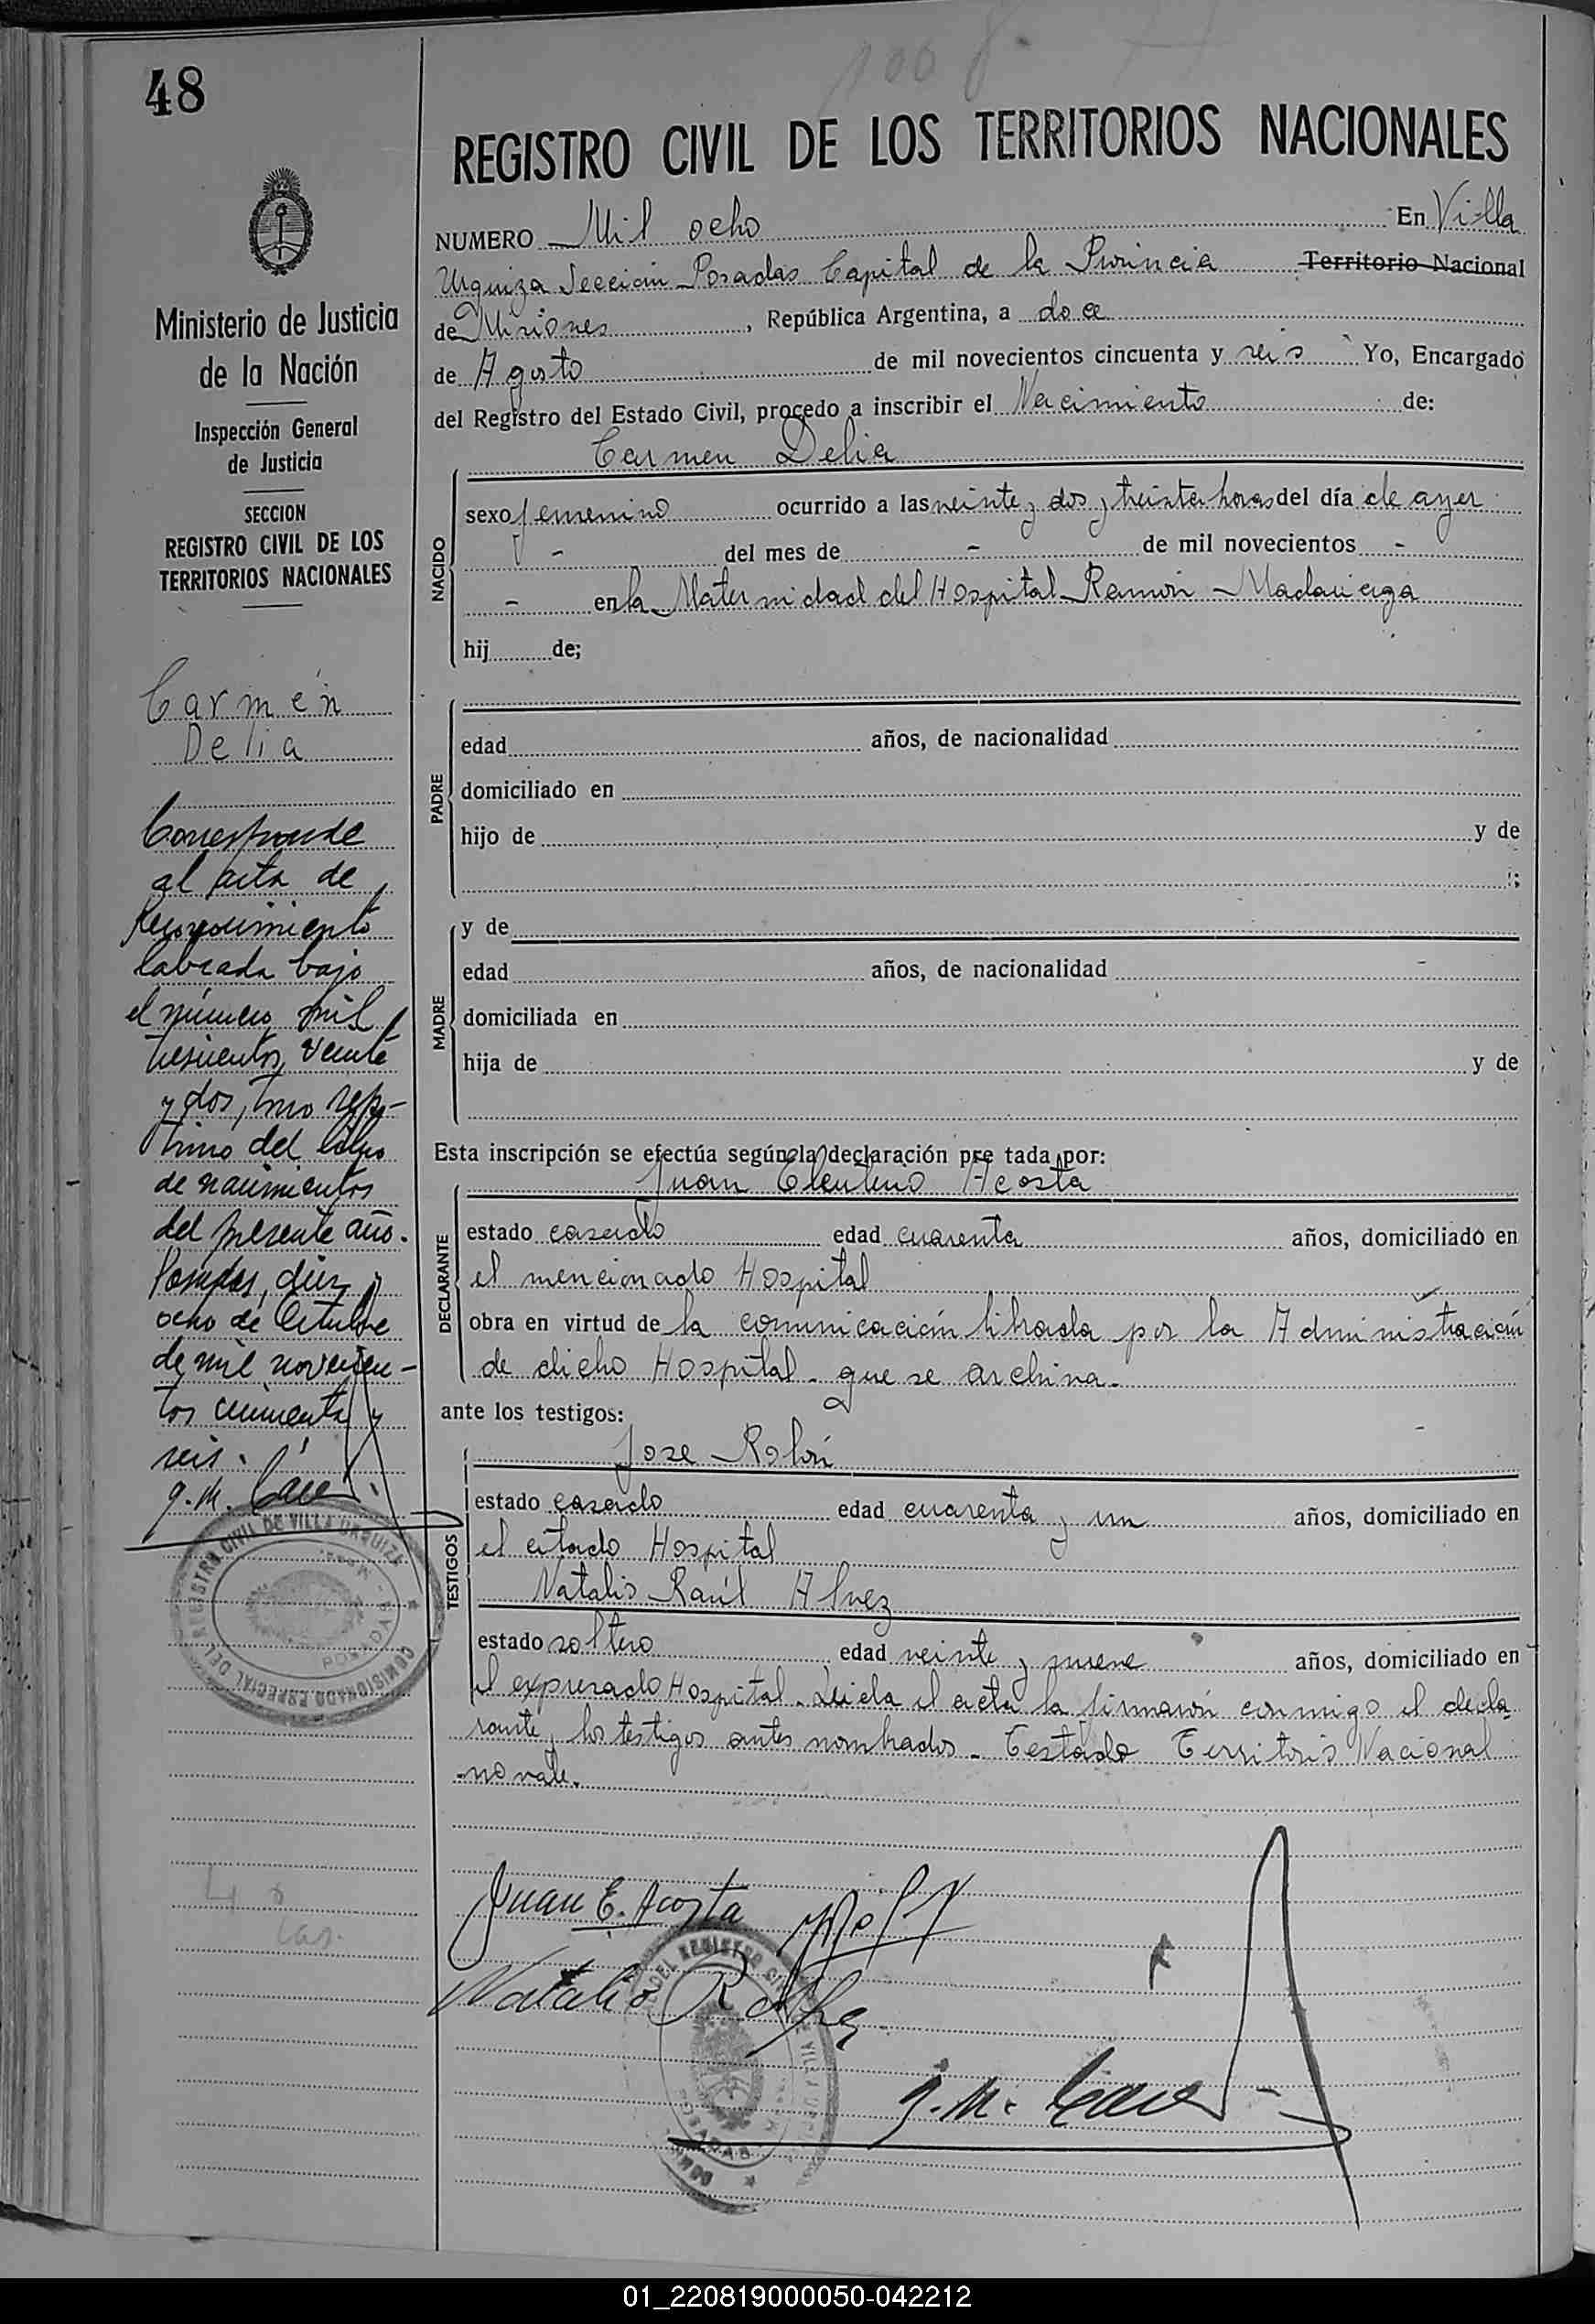 48
REGISTRO CIVIL DE LOS TERRITORIOS NACIONALES
Ministerio de Justicia
de la Nación
Inspección General
de Justicia
SECCION
REGISTRO CIVIL DE LOS
TERRITORIOS NACIONALES
Carmen
Delia
Corresponde
al acta de
Reconocimiento
labrada bajo
el número mil
trescientos veinte
y dos, tomo sép-
timo del libro
de nacimientos
del presente año.
Posadas, diez y
ocho de Octubre
de mil novecien-
tos cincuenta y
seis.
NUMERO Mil ocho En Villa
Urquiza Sección Posadas Capital de la Provincia Territorio Nacional
de Misiones, República Argentina, a doce
de Agosto de mil novecientos cincuenta y seis Yo, Encargado
del Registro del Estado Civil, procedo a inscribir el Nacimiento de:
Carmen Delia
NACIDO
sexo femenino ocurrido a las veinte y dos y treinta horas del día de ayer
- del mes de - de mil novecientos -
- en la Maternidad del Hospital Ramón Madariaga
hij de;
PADRE
edad años, de nacionalidad
domiciliado en
hijo de y de
;
MADRE
y de
edad años, de nacionalidad
domiciliada en
hija de y de
Esta inscripción se efectúa según la declaración pre tada por:
Juan Eleuterio Acosta
DECLARANTE
estado casado edad cuarenta años, domiciliado en
el mencionado Hospital
obra en virtud de la comunicación librada por la Administración
de dicho Hospital - que se archiva.-
ante los testigos:
Jose Rolón
TESTIGOS
estado casado edad cuarenta y un años, domiciliado en
el citado Hospital
Natalio Raúl Alvez
estado soltero edad veinte y nueve años, domiciliado en
el expresado Hospital. Leida el acta la firmaron conmigo el decla
rante y los testigos antes nombrados - Testado Territorio Nacional
-no vale.
Juan E. Acosta
Natalio R.
DEL REGISTRO CIVIL DE VILLA URQUIZA
COMISIONADO ESPECIAL
POSADAS
01_220819000050-042212